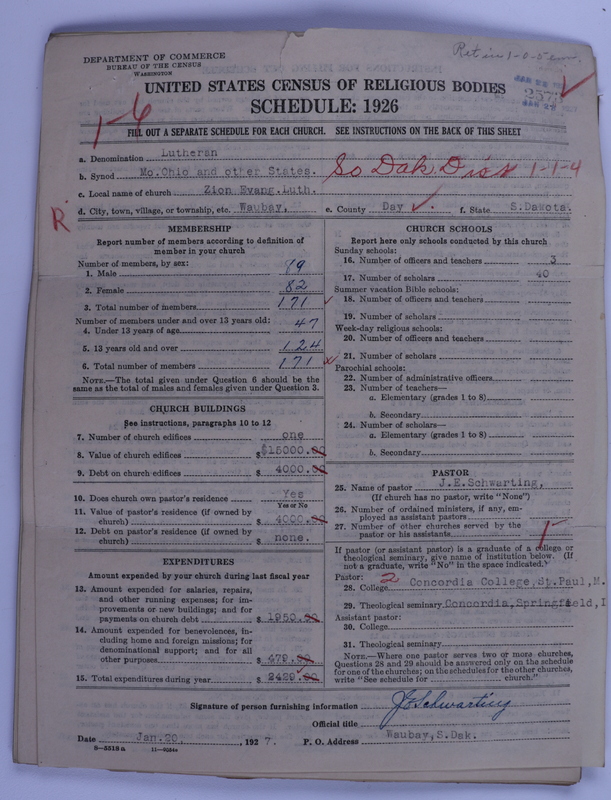 DEPARTMENT OF COMMERCE
BUREAU OF THE CENSUS
WASHINGTON
UNITED STATES CENSUS OF RELIGIOUS BODIES
SCHEDULE: 1926
1-6
FILL OUT A SEPARATE SCHEDULE FOR EACH CHURCH. SEE INSTRUCTIONS ON THE BACK OF THIS SHEET
a. Denomination Lutheran
b. Synod Mo.Ohio and other States. So Dak Dist 1-1-4
c. Local name of church Zion Evang.Luth.
R
d. City, town, village, or township, etc. Waubay, e. County Day f. State S.Dakota.
MEMBERSHIP
Report number of members according to definition of
member in your church
Number of members, by sex:
1. Male 89
2. Female 82
3. Total number of members 171
Number of members under and over 13 years old:
4. Under 13 years of age 47
5. 13 years old and over 124
6. Total number of members 171
NOTE.—The total given under Question 6 should be the
same as the total of males and females given under Question 3.
CHURCH BUILDINGS
See instructions, paragraphs 10 to 12
7. Number of church edifices one
8. Value of church edifices $ $15000.00
9. Debt on church edifices $ 4000.00
10. Does church own pastor's residence Yes
Yes or No
11. Value of pastor's residence (if owned by
church) $ 4000.00
12. Debt on pastor's residence (if owned by
church) $ none.
EXPENDITURES
Amount expended by your church during last fiscal year
13. Amount expended for salaries, repairs,
and other running expenses; for im-
provements or new buildings; and for
payments on church debt $ 1950.00
14. Amount expended for benevolences, in-
cluding home and foreign missions; for
denominational support; and for all
other purposes $ 479.00
15. Total expenditures during year $ 2429.00
CHURCH SCHOOLS
Report here only schools conducted by this church
Sunday schools:
16. Number of officers and teachers 3
17. Number of scholars 40
Summer vacation Bible schools:
18. Number of officers and teachers
19. Number of scholars
Week-day religious schools:
20. Number of officers and teachers
21. Number of scholars
Parochial schools:
22. Number of administrative officers
23. Number of teachers—
a. Elementary (grades 1 to 8)
b. Secondary
24. Number of scholars—
a. Elementary (grades 1 to 8)
b. Secondary
PASTOR
25. Name of pastor J.E.Schwarting,
(If church has no pastor, write "None")
26. Number of ordained ministers, if any, em-
ployed as assistant pastors
27. Number of other churches served by the
pastor or his assistants 1
If pastor (or assistant pastor) is a graduate of a college or
theological seminary, give name of institution below. (If
not a graduate, write "No" in the space indicated.)
Pastor: 2
28. College Concordia College,St.Paul,M.
29. Theological seminary Concordia,Springfield,I
Assistant pastor:
30. College
31. Theological seminary
NOTE.—Where one pastor serves two or more churches,
Questions 28 and 29 should be answered only on the schedule
for one of the churches; on the schedules for the other churches,
write "See schedule for church."
Signature of person furnishing information J.E. Schwarting
Official title
Date Jan.20, , 1927. P. O. Address Waubay,S.Dak.
8-5518a 11-9034a